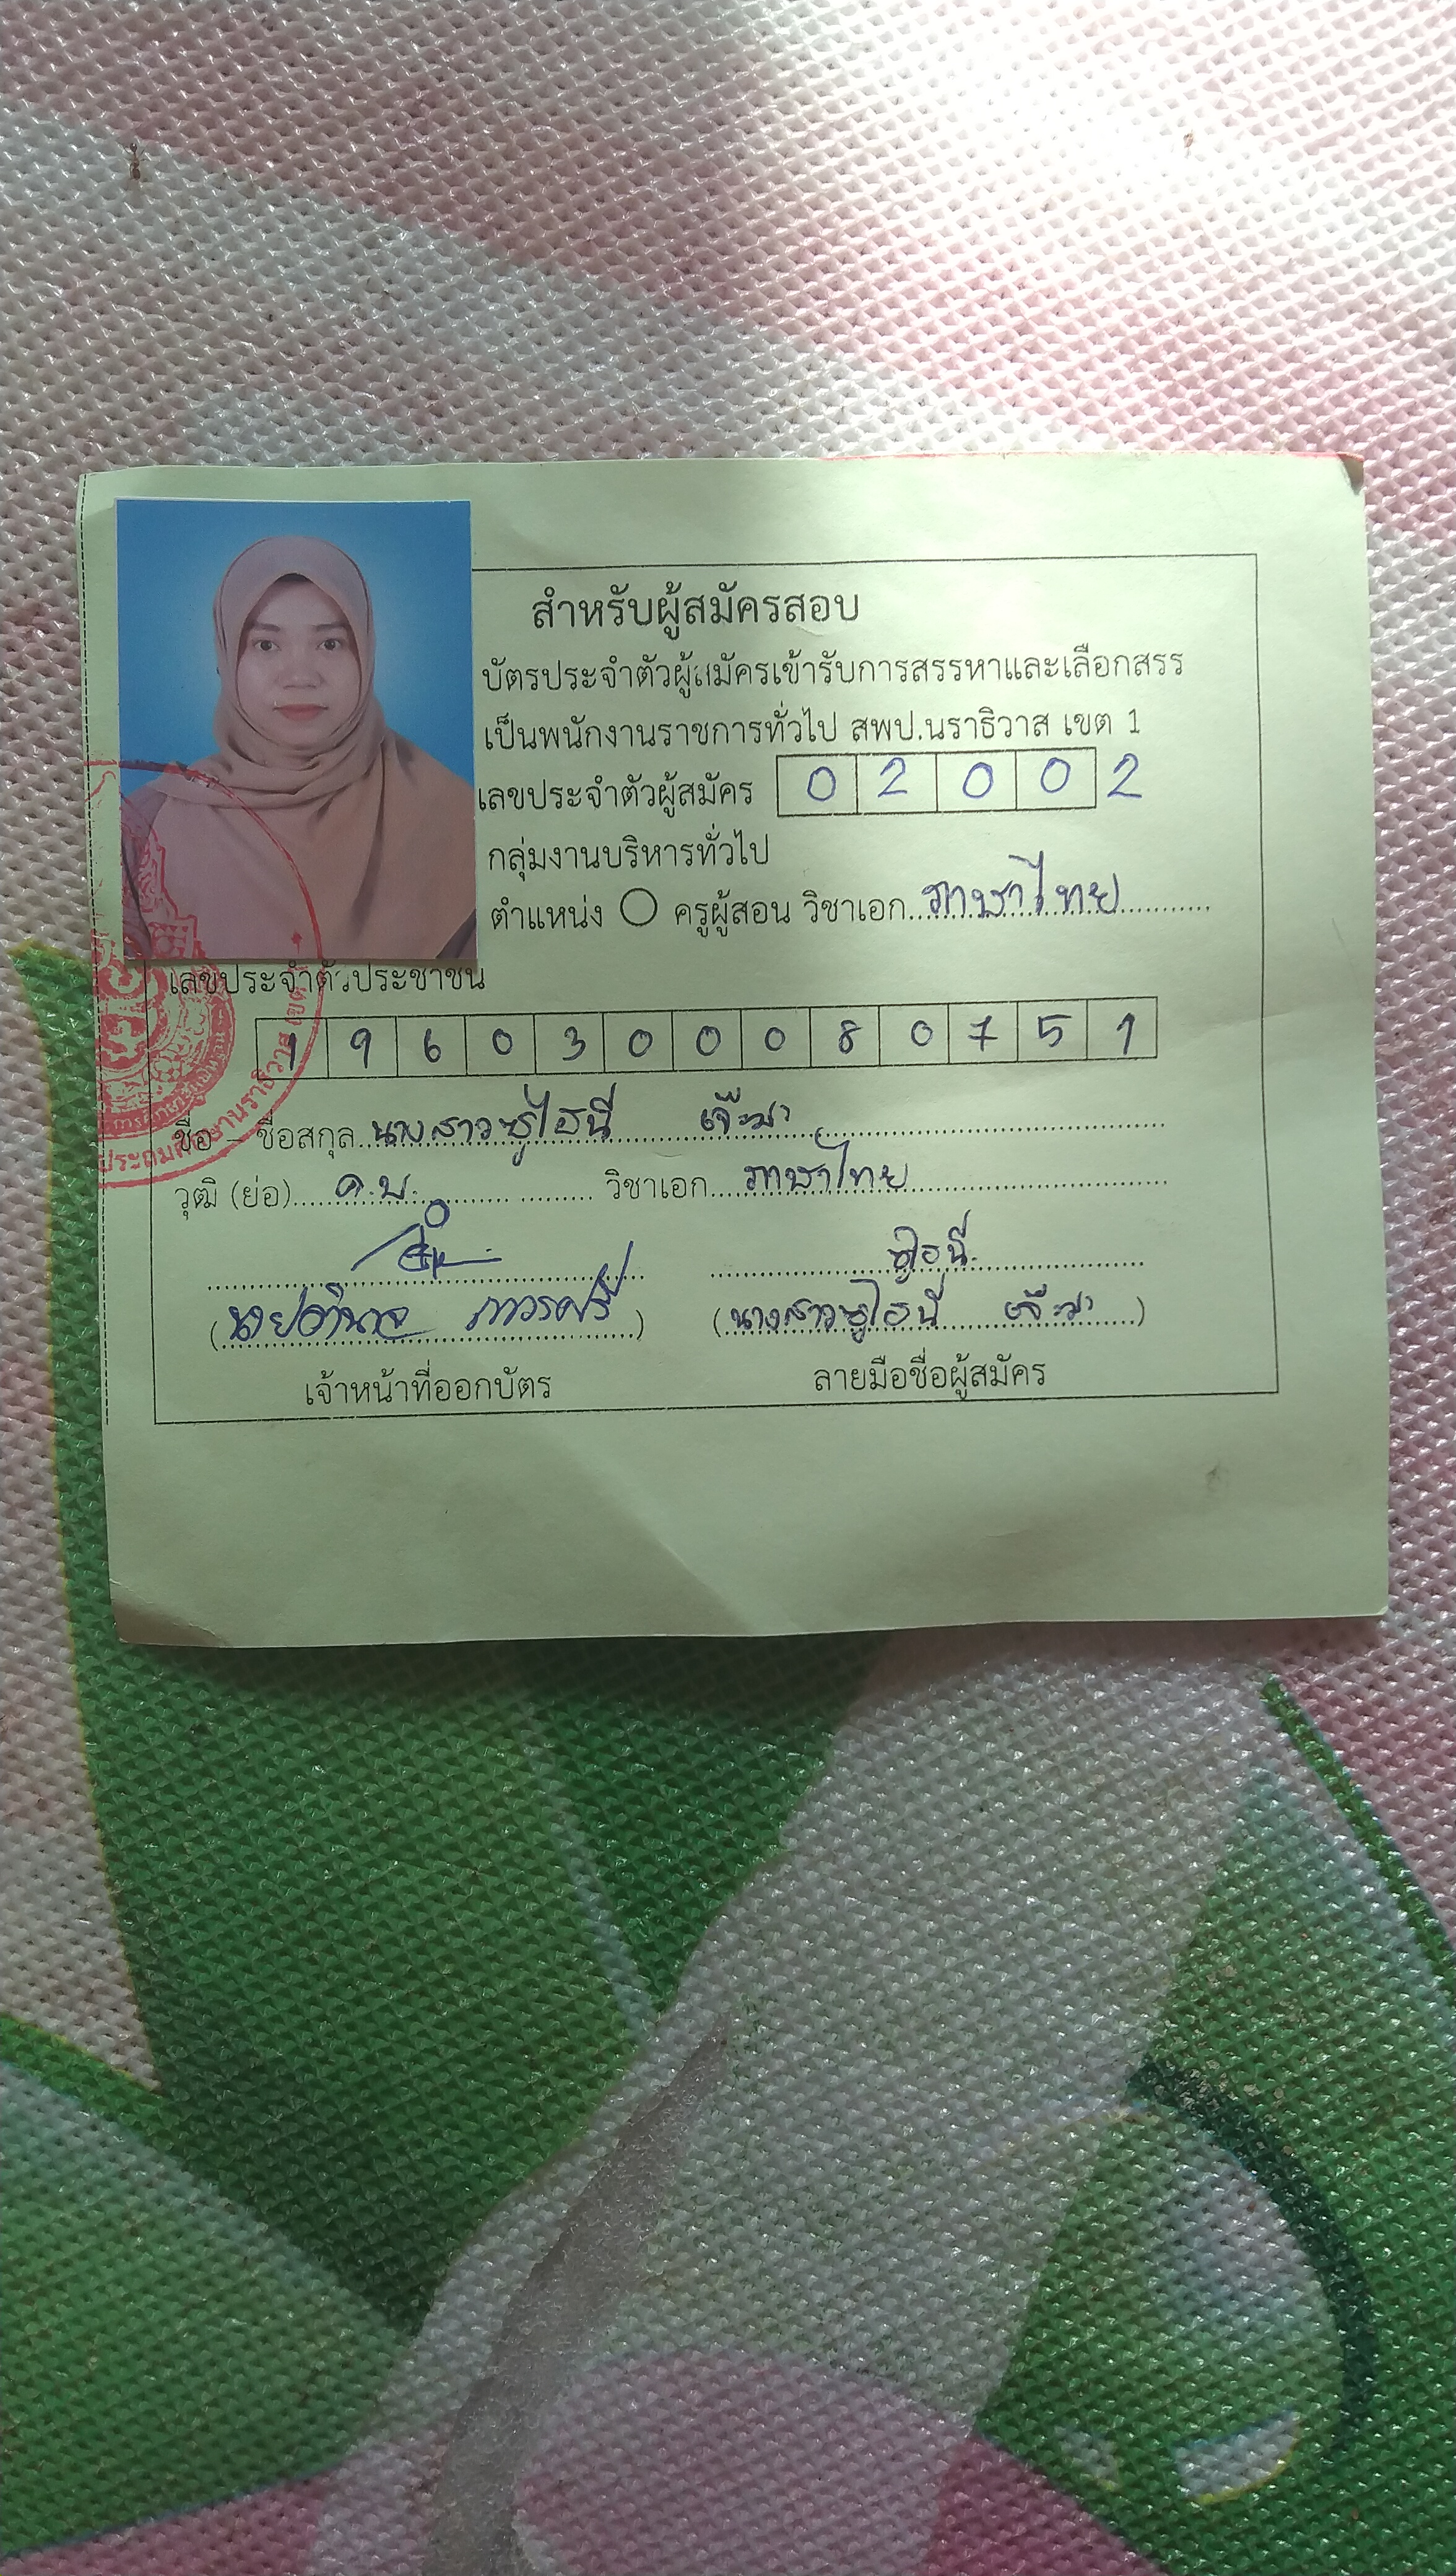 สำหรับผู้สมัครสอบ
บัตรประจำตัวผู้สมัครเข้ารับการสรรหาและเลือกสรร
เป็นพนักงานราชการทั่วไป สพป.นราธิวาส เขต 1
เลขประจำตัวผู้สมัคร 0 2 0 0 2
กลุ่มงานบริหารทั่วไป
ตำแหน่ง ครูผู้สอน วิชาเอก ภาษาไทย
เลขประจำตัวประชาชน
1 9 6 0 3 0 0 0 8 0 7 5 1
ชื่อ - ชื่อสกุล นางสาวซูไฮนี เจ๊ะมา
วุฒิ (ย่อ) ค.บ. วิชาเอก ภาษาไทย
ซูไฮนี
(นางสาวซูไฮนี เจ๊ะมา)
เจ้าหน้าที่ออกบัตร ลายมือชื่อผู้สมัคร
ประถมศึกษานราธิวาส เขต